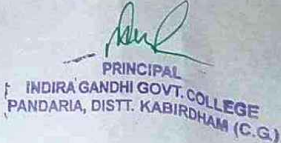 PRINCIPAL
INDIRA GANDHI GOVT. COLLEGE
PANDARIA, DISTT. KABIRDHAM (C.G.)